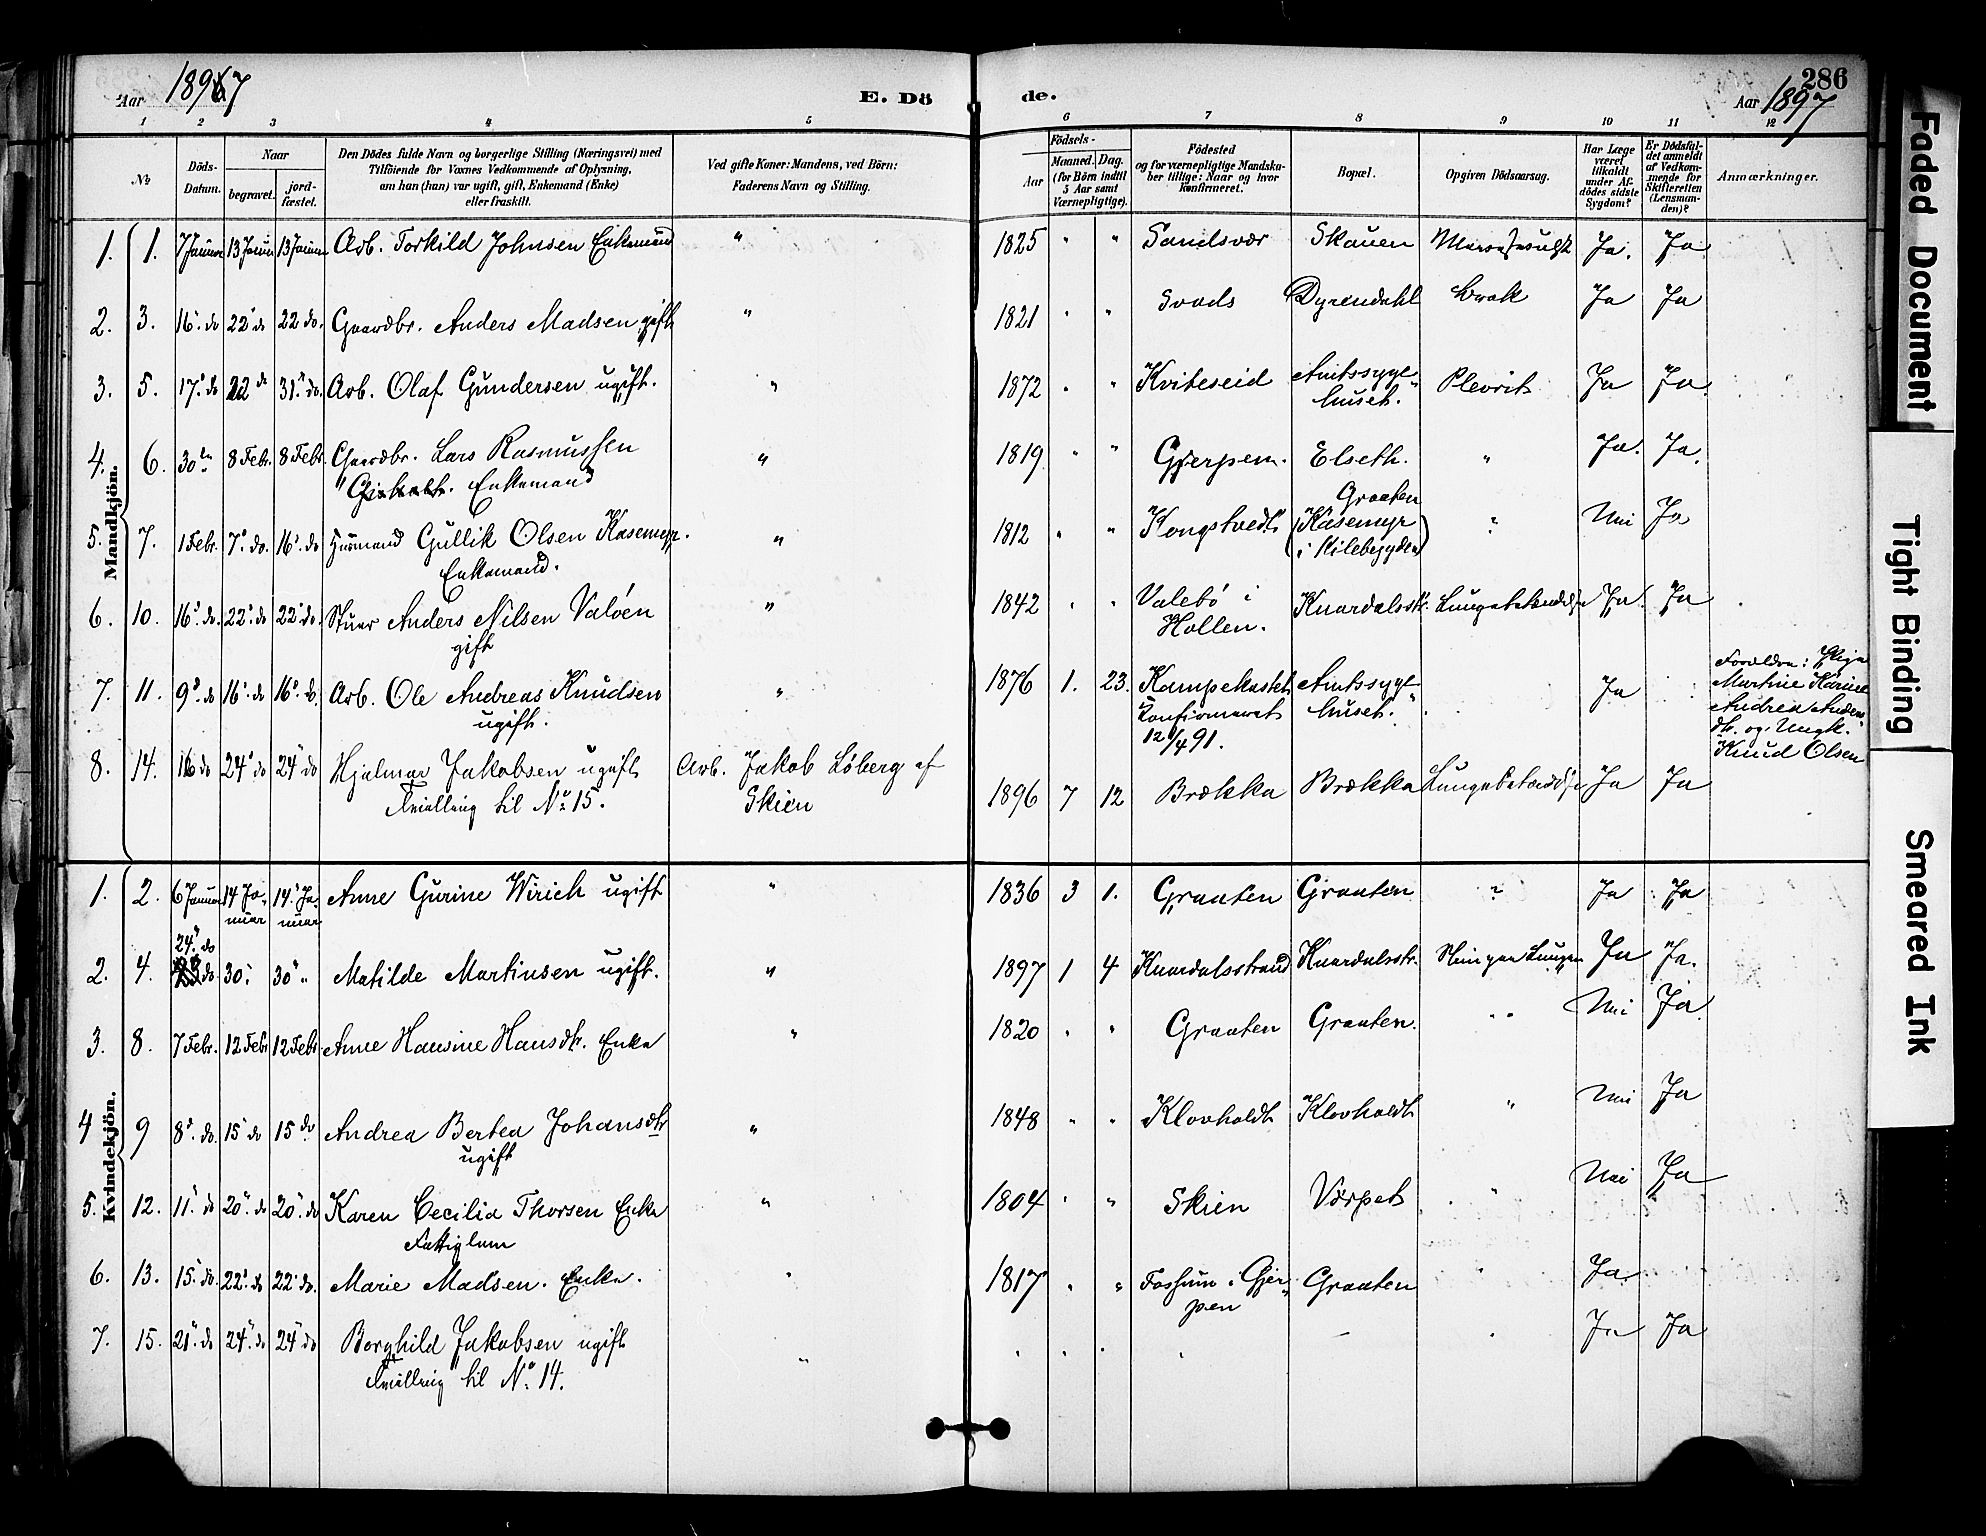 Aar 1897
E. Dö
de.
286
Aar 1897
1 2 3 4 5 6 7 8 9 10 11 12
No
Döds-
Datum.
Naar
begravet.
jord-
fæstet.
Den Dödes fulde Navn og borgerlige Stilling (Næringsvei) med
Tilföiende for Voxnes Vedkommende af Oplysning,
om han (hun) var ugift, gift, Enkemand (Enke)
eller fraskilt.
Ved gifte Koner: Mandens, ved Börn:
Faderens Navn og Stilling.
Födsels-
Aar
Maaned. Dag.
(for Börn indtil
5 Aar samt
Værnepligtige).
Födested
og for værnepligtige Mandska-
ber tillige: Naar og hvor
konfirmeret.
Bopæl.
Opgiven Dödsaarsag.
Har Læge
været
tilkaldt
under Af-
dödes sidste
Sygdom?
Er Dödsfal-
det anmeldt
af Vedkom-
mende for
Skifteretten
(Lensman-
den)?
Anmærkninger.
Mandkjön.
1. 1. 7 Januar 13 Januar 13 Januar Arb. Torkild Johnsen Enkemand " 1825 " " Sandsvær Skauen Ja. Ja.
2. 3. 16. do 22 do 22 do. Gaardbr. Anders Madsen gift " 1821 " " Svads Dyrendahl Brok Ja Ja
3. 5. 17. do 22 do 31. do. Arb. Olaf Gundersen ugift. " 1872 " " Kviteseid Amtssyge-
huset. Plevrit Ja Ja.
4. 6. 30te 8 Febr. 8 Febr. Gaardbr. Lars Rasmussen
Enkemand " 1819 " " Gjerpen. Elseth. " Ja. Ja.
5. 7. 1 Febr. 7. do. 16. do Husmand Gullik Olsen Kasemyr.
Enkemand. " 1812 " " Kongstvedt Graaten
(Kasemyr
i Kilebygden) ? Nei Ja
6. 10. 16. do. 22. do 22. do. Stuer Anders Nilsen Valöen
gift " 1842 " " Valebö i
Hollen. Knardalsstr. Lungebetændelse Ja. Ja
7. 11. 9. do 16. do 16. do. Arb. Ole Andreas Knudsen
ugift. " 1876 1. 23. Kampekastet
Konfirmeret
12/4 91. Amtssyge-
huset. Ja
Forældre: Pige
Martine Karine
Andrea Anders-
dt. og Ungk.
Knud Olsen
8. 14. 16 do 24 do 24 do Hjalmar Jakobsen ugift
Tvilling til No 15. Arb. Jakob Löberg af
Skien 1896 7 12 Brækka Brækka Lungebetændelse Ja Ja
Kvindekjön.
1. 2. 6 Januar 14 Ja-
nuar 14 Ja-
nuar Anne Gurine Wirich ugift " 1836 3 1. Graaten Graaten ? Ja Ja
2. 4. 24. do
23 do 30. 30 " Matilde Martinsen ugift. " 1897 1 4 Knardalsstrand Knardalsstr. Ja Ja.
3. 8. 7 Febr. 12 Febr 12 Febr Anne Hansine Hansdt. Enke " 1820 " " Graaten Graaten. " " Nei Ja.
4 9 8. do. 15 do 15 do Andrea Bertea Johansdt
ugift " 1848 " " Klovholdt Klovholdt " Nei Ja
5. 12. 11. do 20. do 20. do Karen Cecilia Thorsen Enke
Fattiglem " 1804 " " Skien Værpet " Nei Ja
6. 13. 15. do. 22. do 22. do. Marie Madsen. Enke. " 1817 " " Fossum i Gjer-
pen Graaten " Ja.
7. 15. 21. do 24. do 24 do Borghild Jakobsen ugift
Tvilling til No 14. " Ja Ja
Faded Document
Tight Binding
Smeared Ink